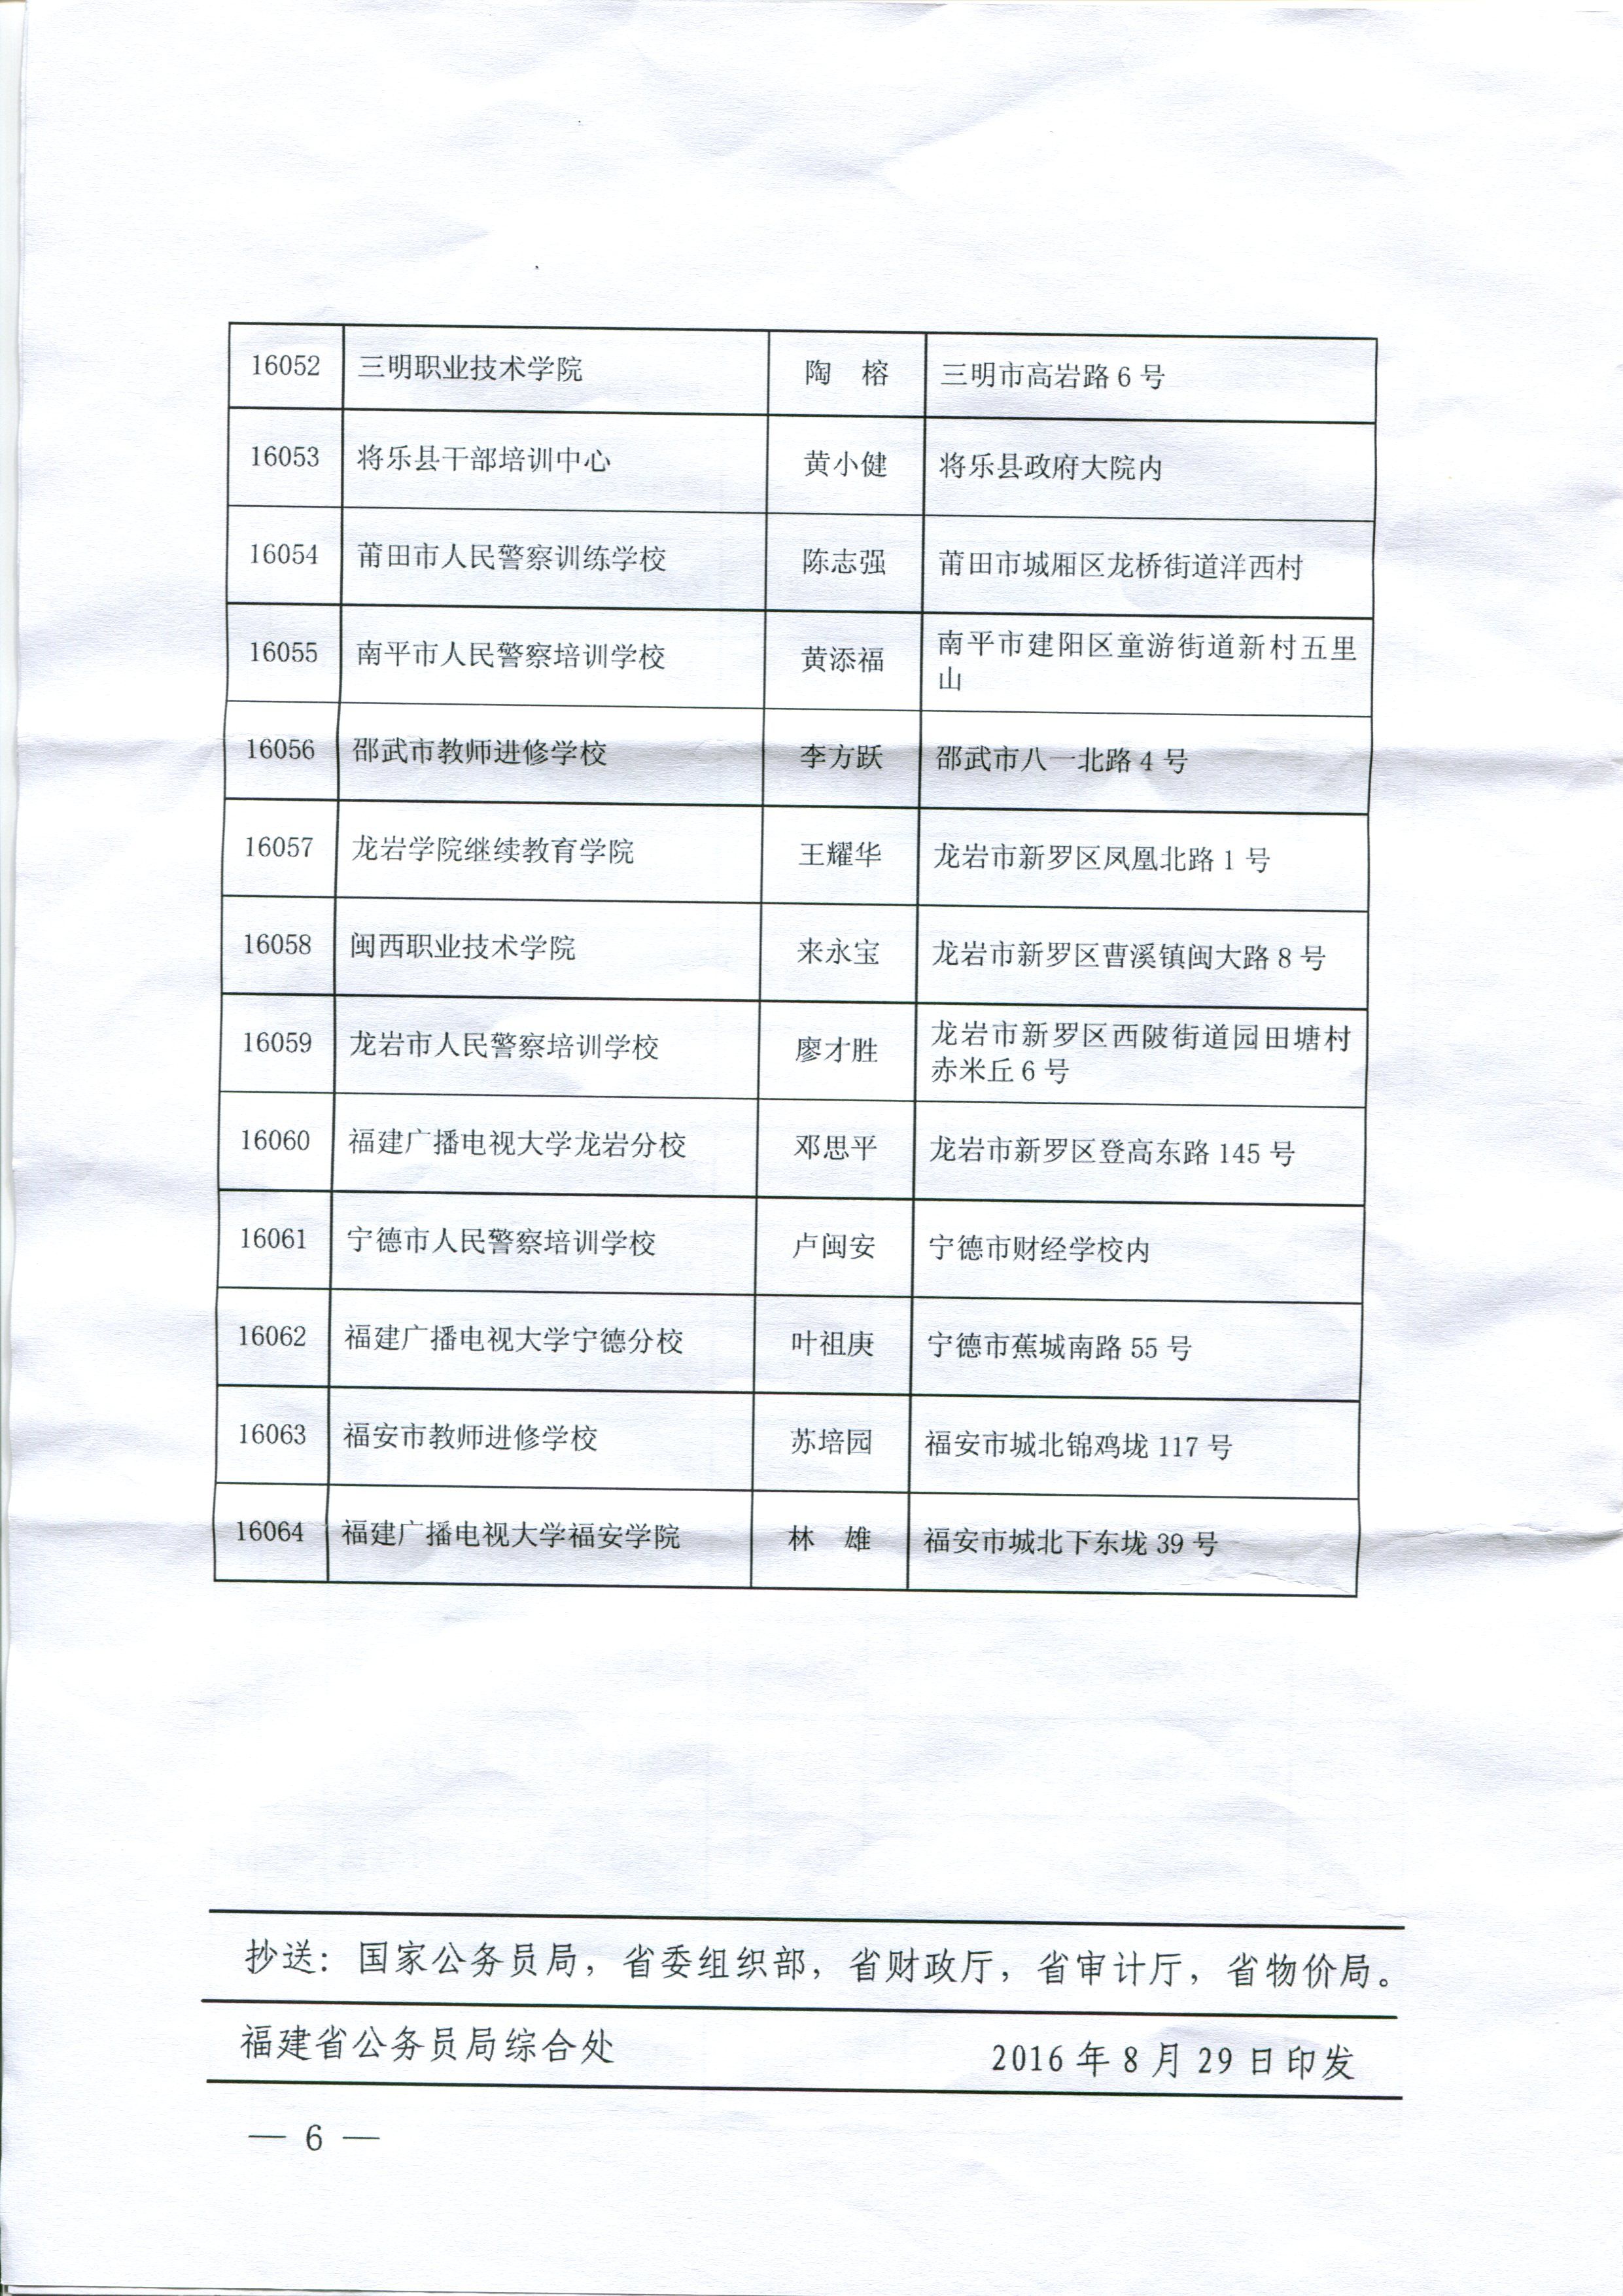 16052 三明职业技术学院 陶 榕 三明市高岩路 6 号
16053 将乐县干部培训中心 黄小健 将乐县政府大院内
16054 莆田市人民警察训练学校 陈志强 莆田市城厢区龙桥街道洋西村
16055 南平市人民警察培训学校 黄添福 南平市建阳区童游街道新村五里
山
16056 邵武市教师进修学校 李方跃 邵武市八一北路 4 号
16057 龙岩学院继续教育学院 王耀华 龙岩市新罗区凤凰北路 1 号
16058 闽西职业技术学院 来永宝 龙岩市新罗区曹溪镇闽大路 8 号
16059 龙岩市人民警察培训学校 廖才胜 龙岩市新罗区西陂街道园田塘村
赤米丘 6 号
16060 福建广播电视大学龙岩分校 邓思平 龙岩市新罗区登高东路 145 号
16061 宁德市人民警察培训学校 卢闽安 宁德市财经学校内
16062 福建广播电视大学宁德分校 叶祖庚 宁德市蕉城南路 55 号
16063 福安市教师进修学校 苏培园 福安市城北锦鸡垅 117 号
16064 福建广播电视大学福安学院 林 雄 福安市城北下东垅 39 号
抄送：国家公务员局，省委组织部，省财政厅，省审计厅，省物价局。
福建省公务员局综合处 2016 年 8 月 29 日印发
— 6 —